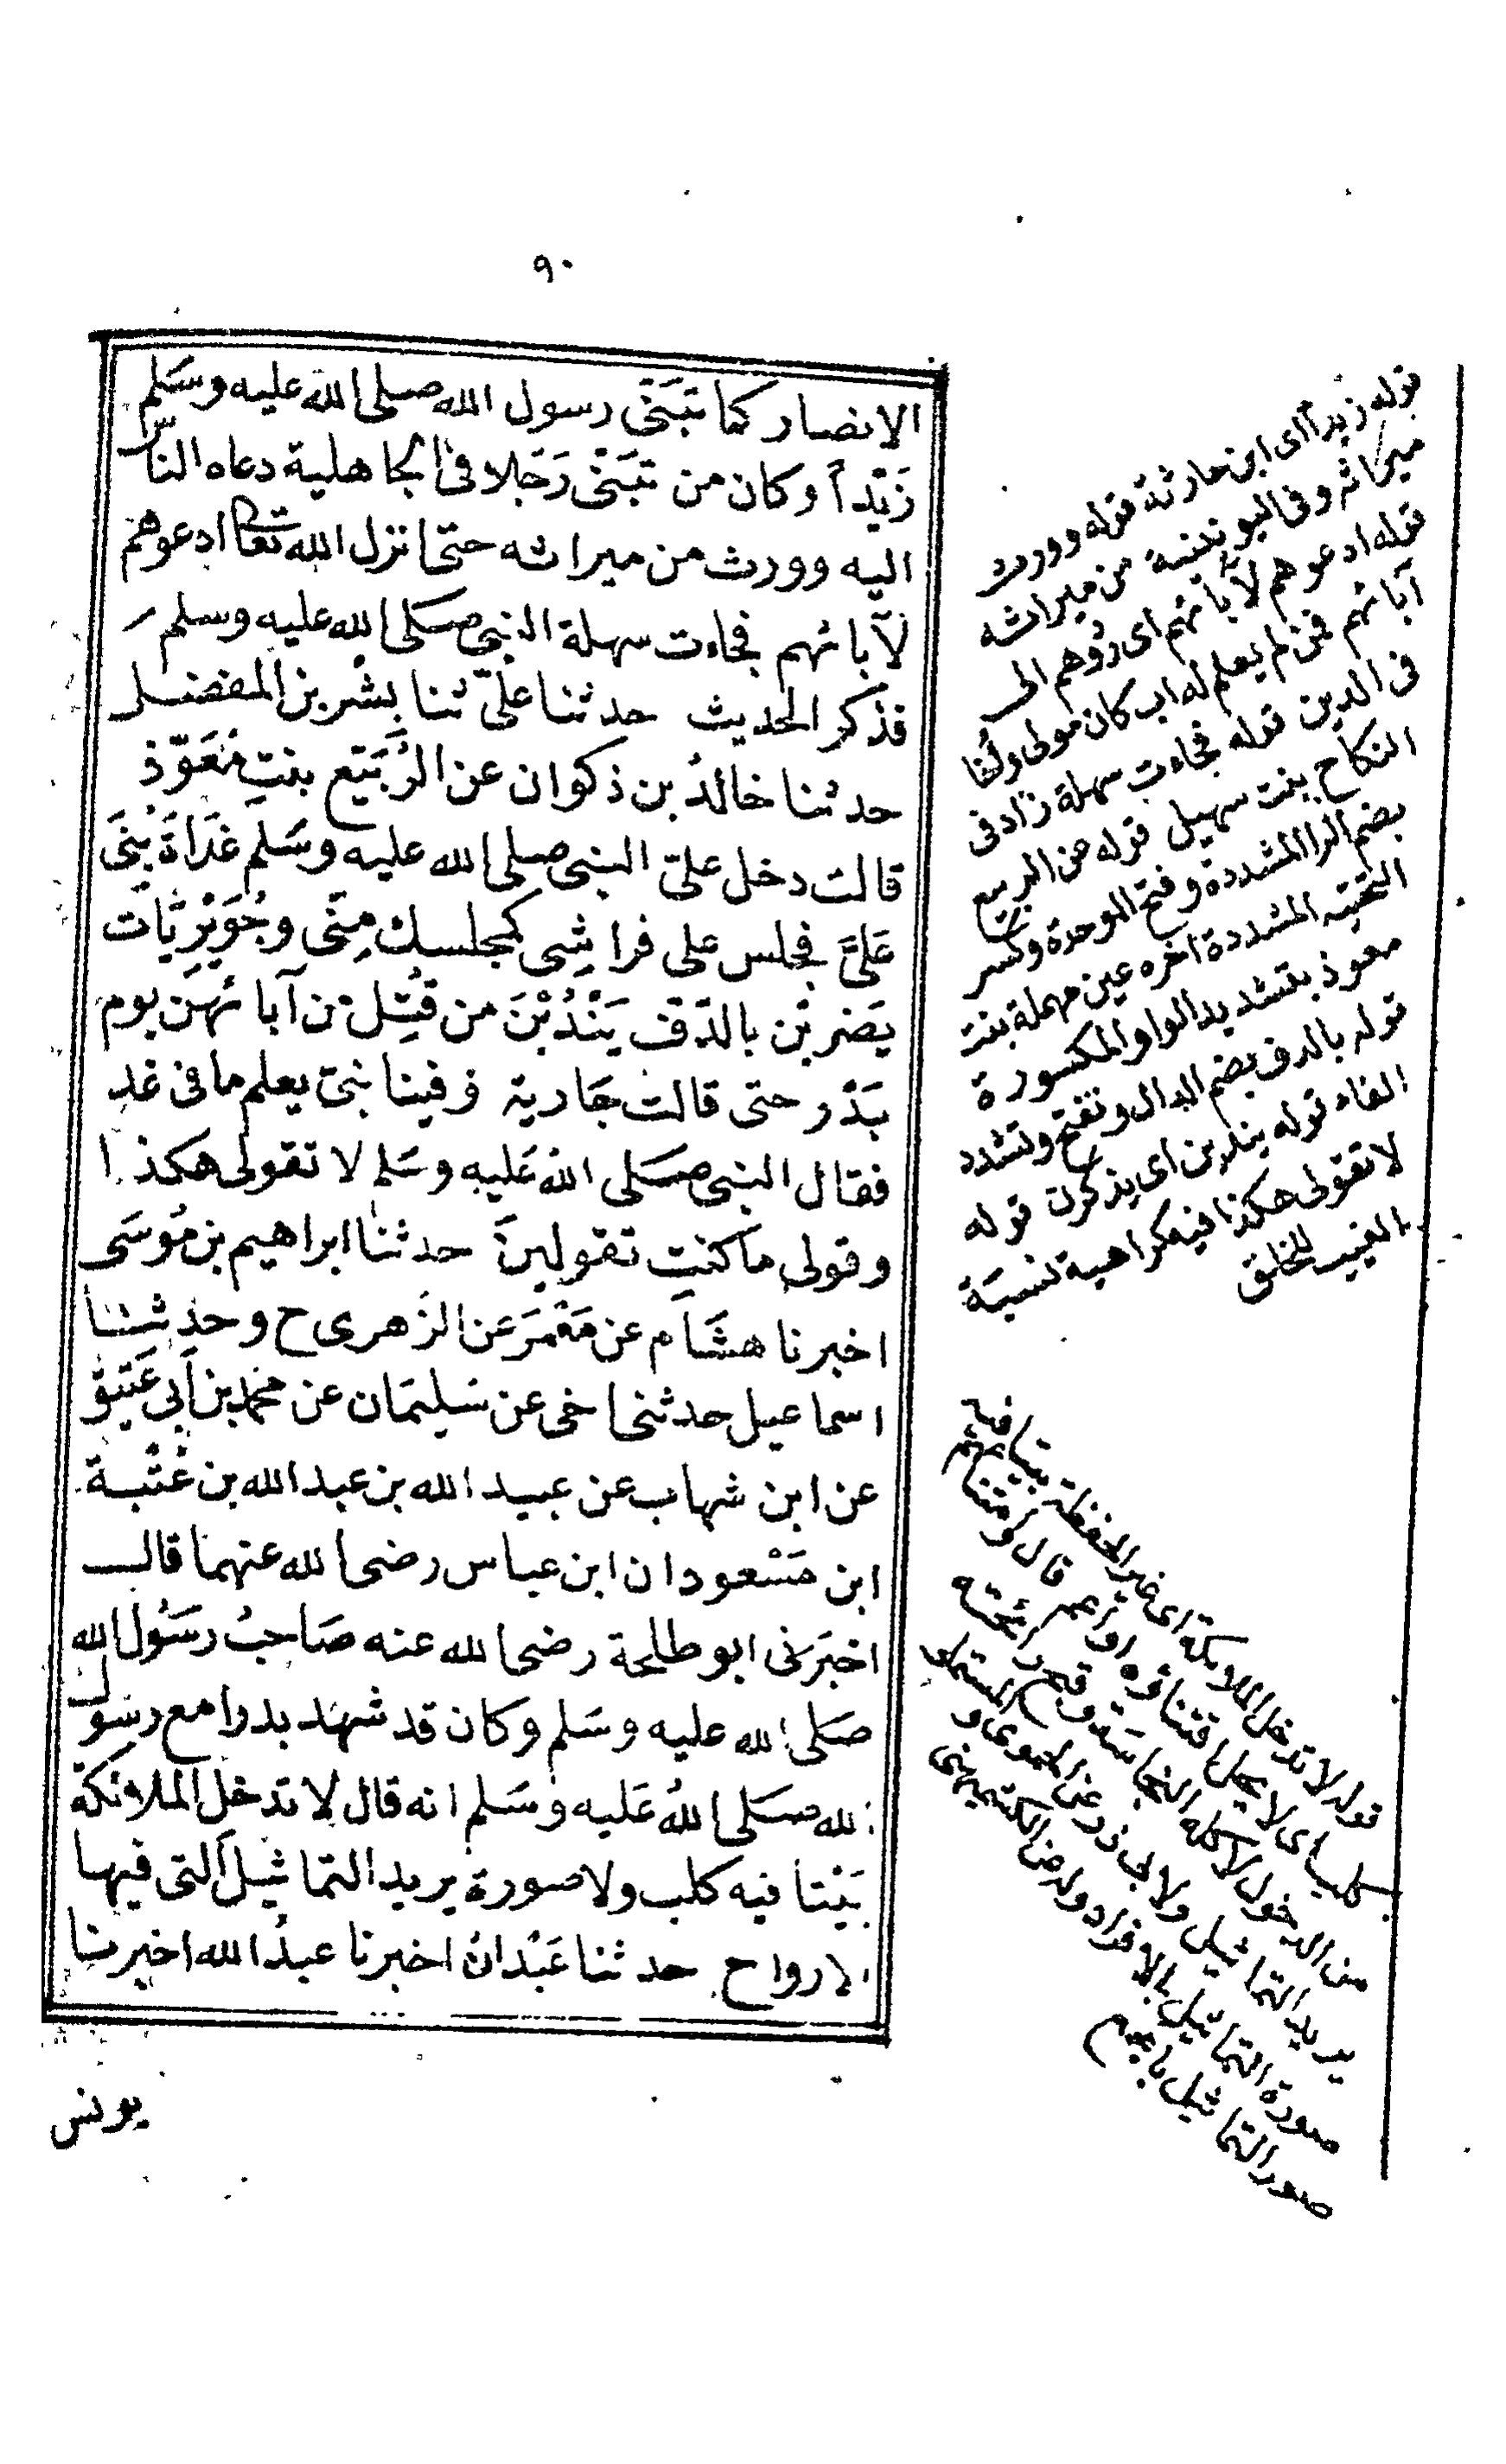 ٩٠
الانصار كما تَبَنَّى رسول الله صلى الله عليه وسَلم
زَيْداً وكان من تَبَنَّى رَجُلا فى الجاهلية دعاه الناس
اليه وورث من ميراثه حتى انزل الله تعالى ادعوهم
لآبائهم فجاءت سهلة النبى صَلى الله عليه وسلم
فذكر الحديث حدثنا علىّ ثنا بشر بن المفضل
حدثنا خالدُ بن ذكوان عن الرُّبَيّع بنتِ مُعَوّذ
قالت دخل علىّ النبى صلى الله عليه وسَلم غَدَاةَ بُنِىَ
عَلَىَّ فجلس على فراشِى كمجلسك مِنّى وجُوَيْرِيَات
يَضربْن بالدّف يَنْدُبْنَ من قُتِل من آبائهنّ يوم
بَدْر حتى قالت جَارية وفينا نبىّ يعلم ما فى غد
فقال النبى صَلى اللهُ عَليه وسَلم لا تقولى هكذا
وقولى ما كنتِ تقولينَ حدثنا ابراهيم بن مُوسَى
اخبرنا هشَام عن مَعْمَرَ عن الزُهرى ح وحدثنا
اسماعيل حدثنى اخى عن سَليمَان عن محمد بن أبى عَتيق
عن ابن شهاب عن عبيد الله بن عبد الله بن عُتْبة
ابن مَسْعود ان ابن عباس رضى الله عنهما قال
اخبَرَنى ابو طلحة رضى الله عنه صَاحبُ رسَوُل الله
صَلى الله عليه وسَلم وكان قد شهَد بدرا مع رسَول
الله صَلى اللهُ عَليه وسَلم انه قال لا تدخل الملائكة
بَيْتا فيه كلب ولا صورة يريد التماثيلَ التى فيها
الارواح حدثنا عَبْدانُ اخبرنا عبدُ الله اخبرنا
يونس
قوله زيداً اى ابن حارثة قوله وورث
ميراثه وفى اليونينية من ميراثه
قوله ادعوهم لآبائهم اى ردّوهم الى
آبائهم فمن لم يعلم له اب كان مولى واخا
فى الدين قوله فجاءت سهلة زاد فى
النكاح بنت سهيل قوله عن الربيع
بضم الرا المشددة وفتح الموحدة وكسر
التحتية المشددة اخره عين مهملة بنت
معوذ بتشديد الواو المكسورة
قوله بالدف بضم الدال وتفتح وتشدد
الفاء قوله يندبن اى يذكرن قوله
لا تقولى هكذا فيه كراهية نسبة
الغيب للخلق
قوله لا تدخل الملائكة اى غير الحفظة بيتا فيه
كلب اى لا يحل اقتناؤه
من الدخول لاكله النجاسة وقبح رائحته
يريد التماثيل ولابى ذر عن الحموى و
صورة التماثيل بالافراد
صور التماثيل